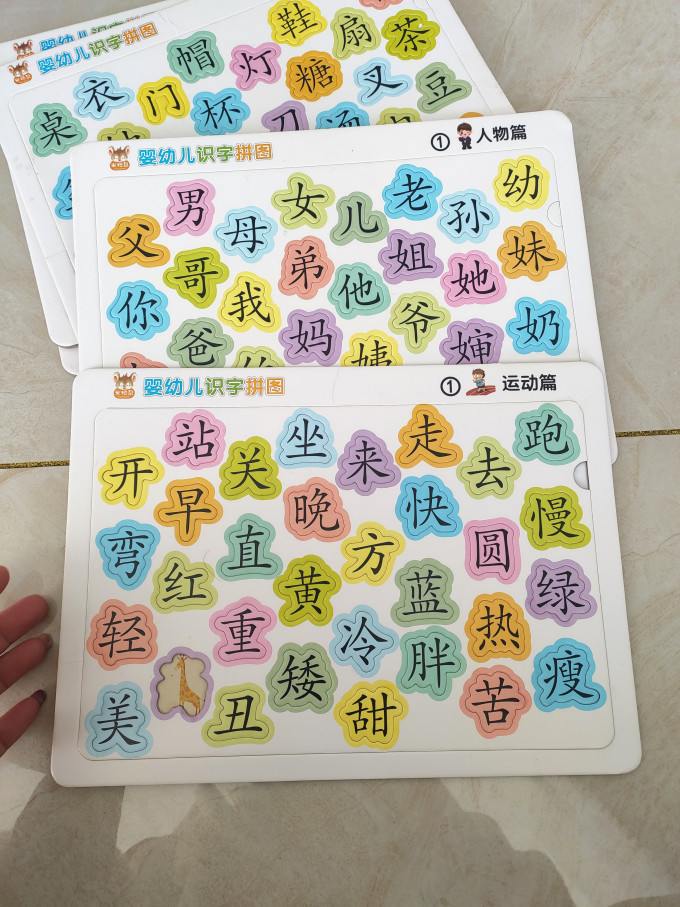 婴幼儿识字拼图
婴幼儿识字拼图
鞋 扇 茶
帽 灯 糖 叉 豆
桌 衣 门 杯
婴幼儿识字拼图 ① 人物篇
男 女 儿 老 孙 幼
父 母 弟 姐 她 妹
你 哥 我 他 爷 奶
爸 妈 姨 婶
婴幼儿识字拼图 ① 运动篇
开 站 关 坐 来 走 去 跑
早 晚 快 慢
弯 红 直 黄 方 蓝 圆 绿
轻 重 冷 胖 热 瘦
美 丑 矮 甜 苦